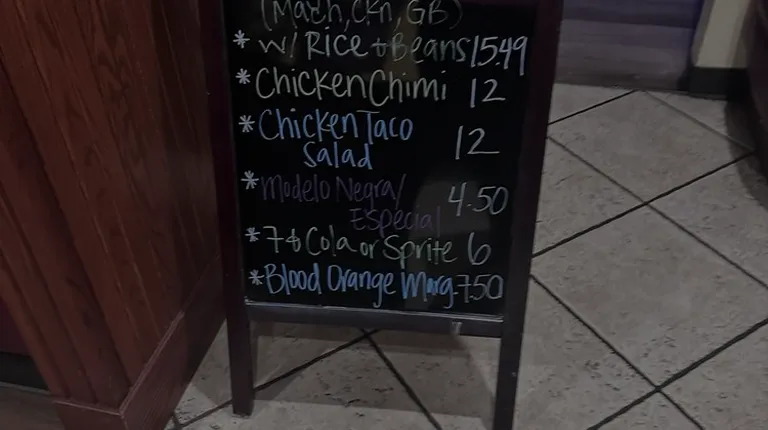 (Mach, Ckn, GB)
* w/ Rice + Beans 15.49
* Chicken Chimi 12
* Chicken Taco
Salad 12
* Modelo Negra/
Especial 4.50
* 7 & Cola or Sprite 6
* Blood Orange Marg. 7.50